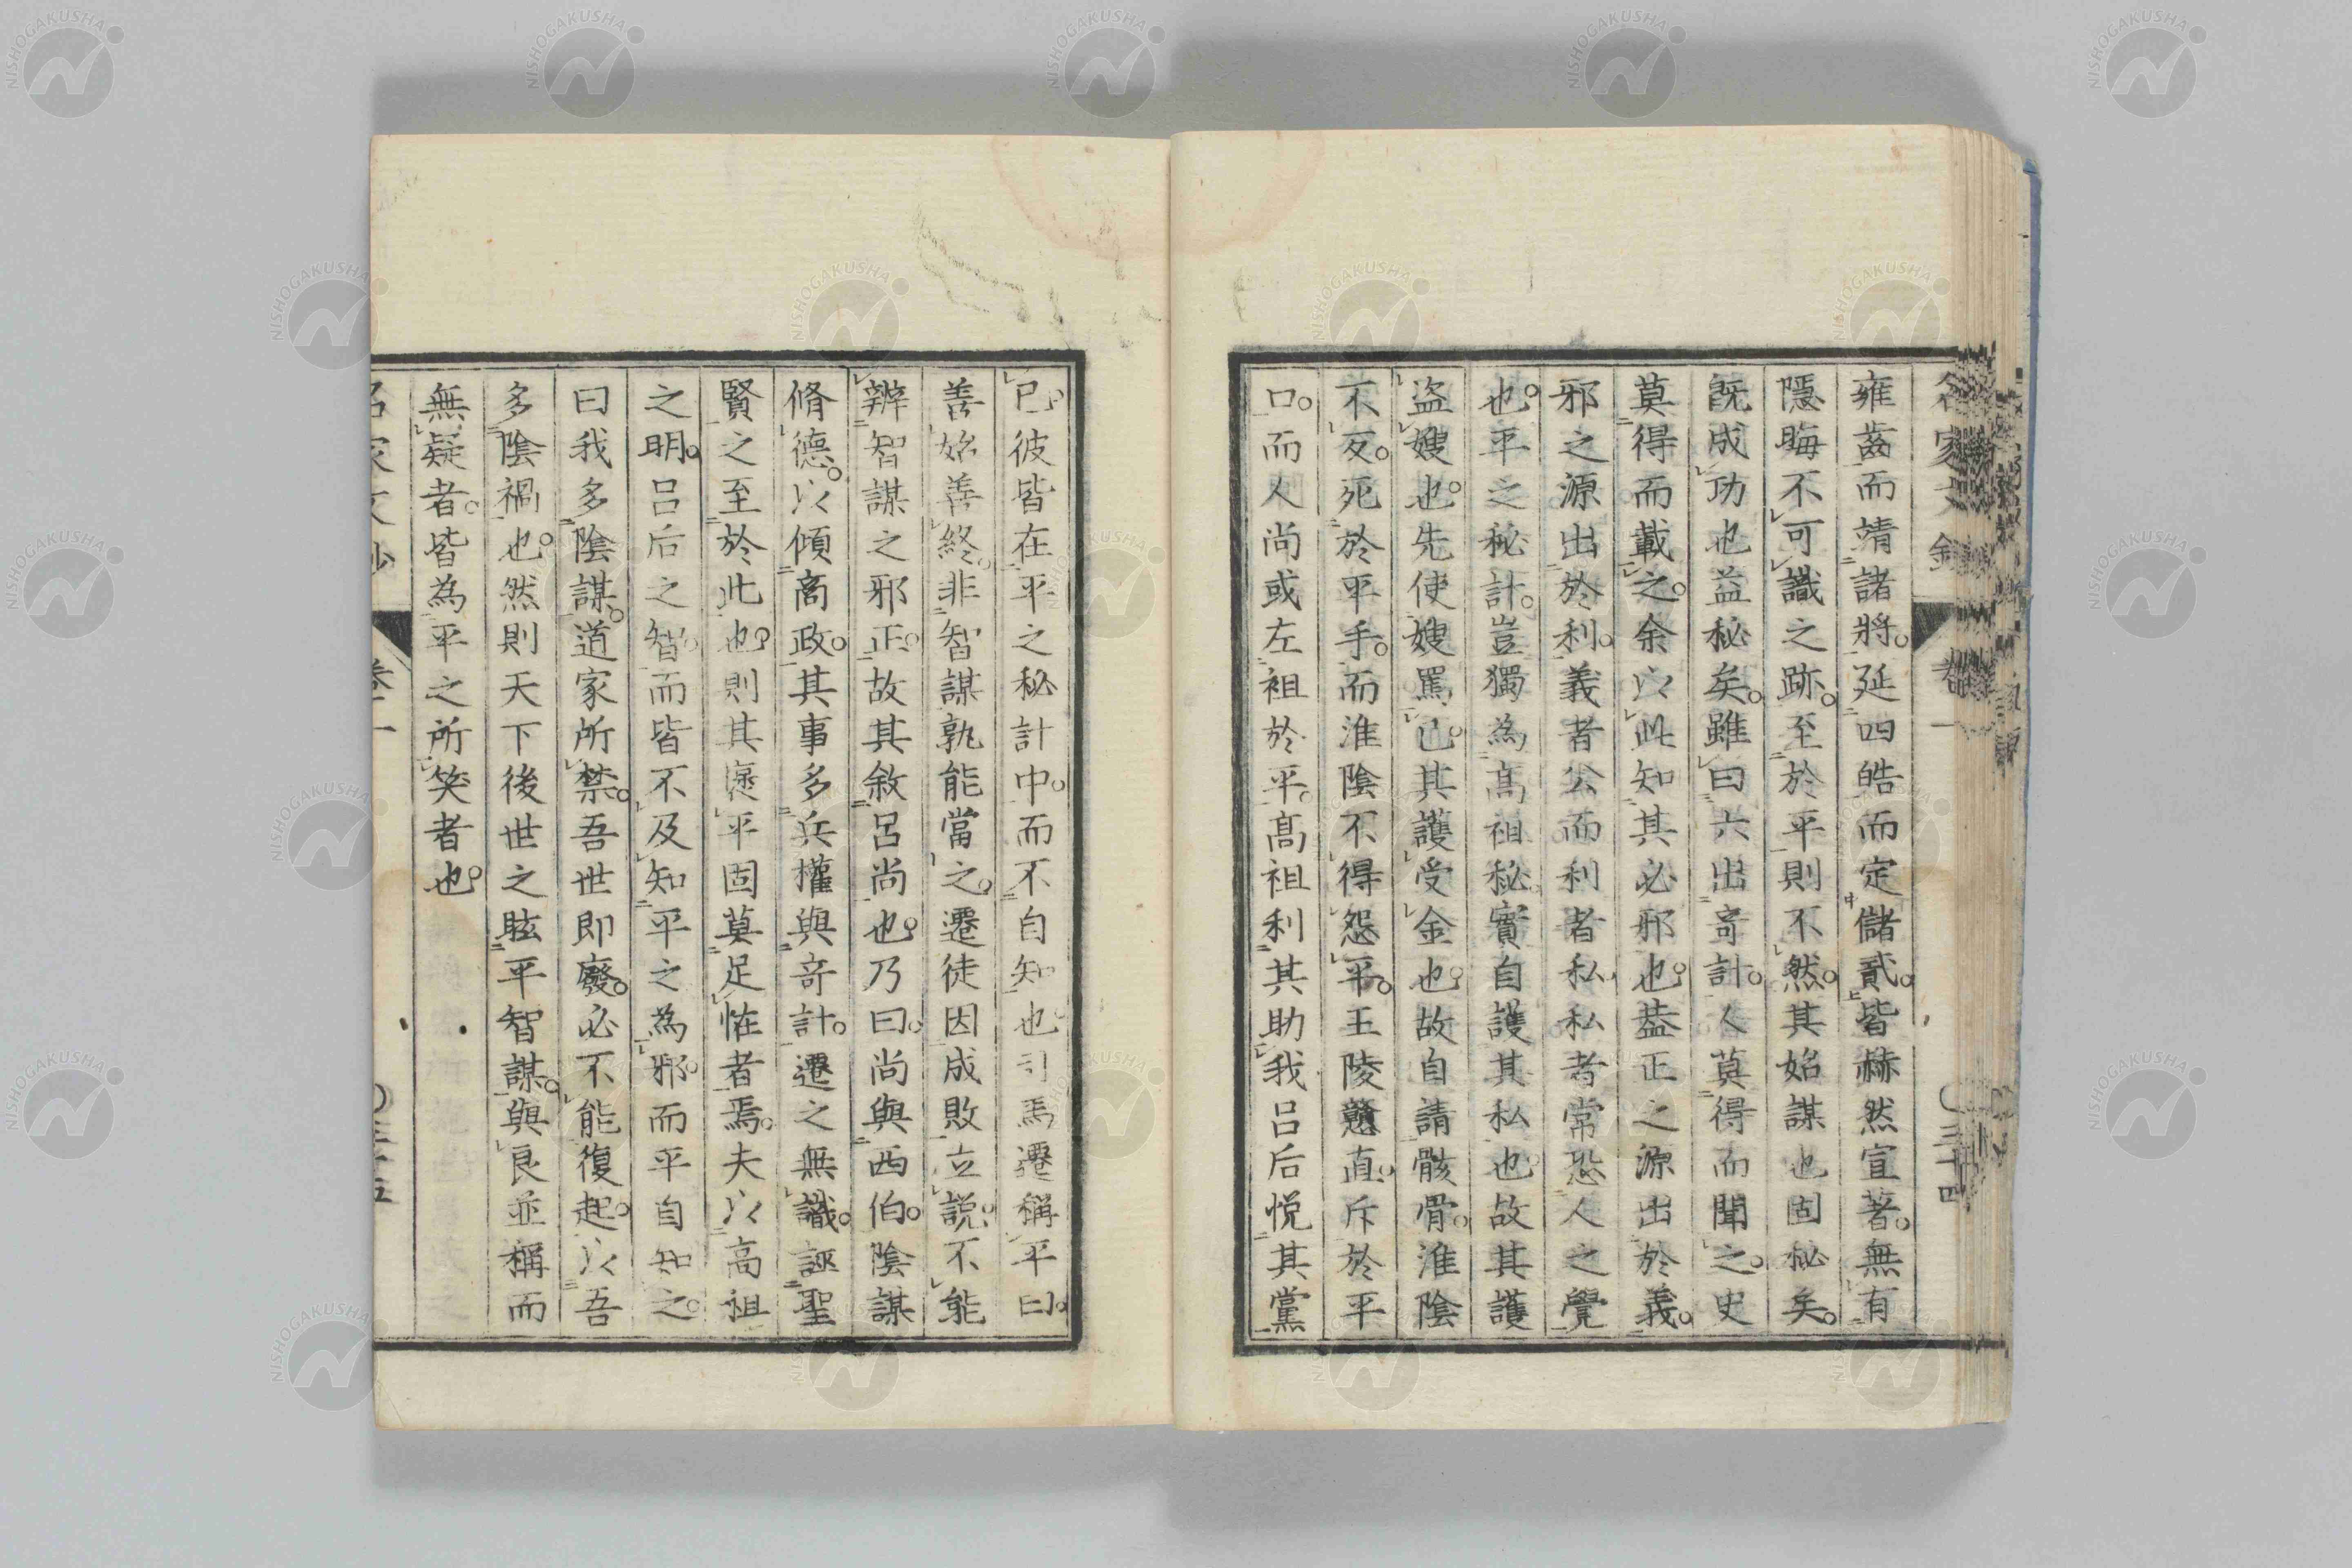 雍齒而靖諸將。延四皓而定儲貳。皆赫然宣著。無有
隱晦不可識之跡。至於平則不然。其始謀也固秘矣。
既成功也益秘矣。雖曰六出奇計。人莫得而聞之。史
莫得而載之。余以此知其必邪也。蓋正之源出於義。
邪之源出於利。義者公而利者私。私者常恐人之覺
也。平之秘計。豈獨為高祖秘。實自護其私也。故其護
盜嫂也。先使嫂罵已。其護受金也。故自請骸骨。淮陰
不反。死於平手。而淮陰不得怨平。王陵戇直。斥於平
口。而人尚或左袒於平。高祖利其助我呂后悅其黨
已。彼皆在平之秘計中。而不自知也。司馬遷稱平曰。
善始善終。非智謀孰能當之。遷徒因成敗立說。不能
辨智謀之邪正。故其敘呂尚也。乃曰。尚與西伯。陰謀
脩德。以傾商政。其事多兵權與奇計。遷之無識。誣聖
賢之至於此也。則其褒平固莫足怪者焉。夫以高祖
之明。呂后之智。而皆不及知平之為邪。而平自知之。
曰我多陰謀。道家所禁。吾世即廢。必不能復起。以吾
多陰禍也。然則天下後世之眩平智謀。與良並稱而
無疑者。皆為平之所笑者也。